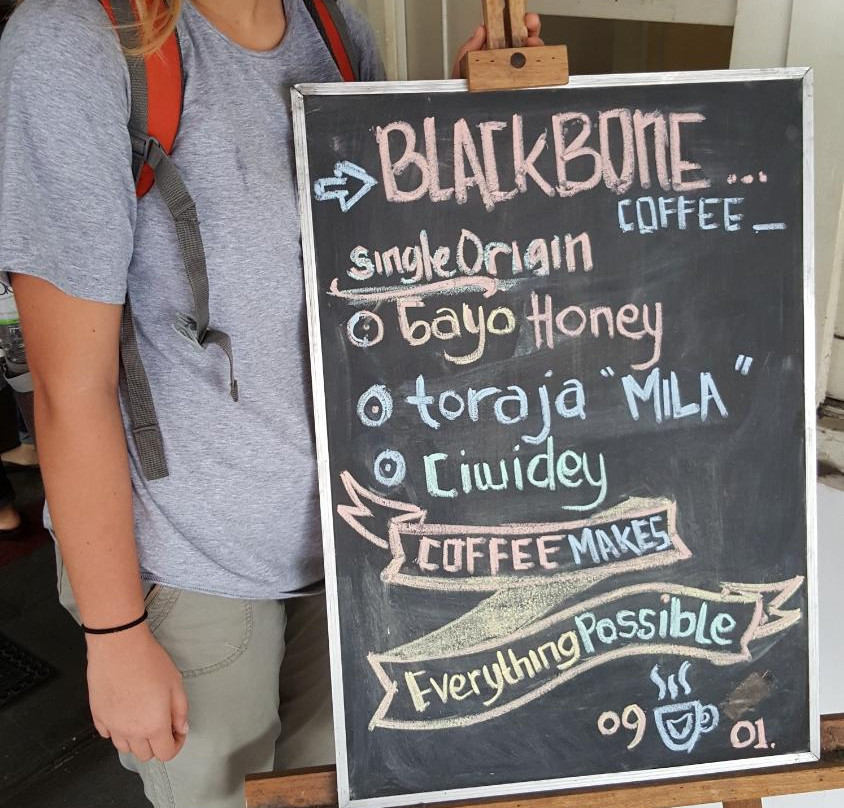 BLACKBONE...
COFFEE_
single Origin
Gayo Honey
toraja "MILA"
Ciwidey
COFFEE MAKES
Everything Possible
09 01.